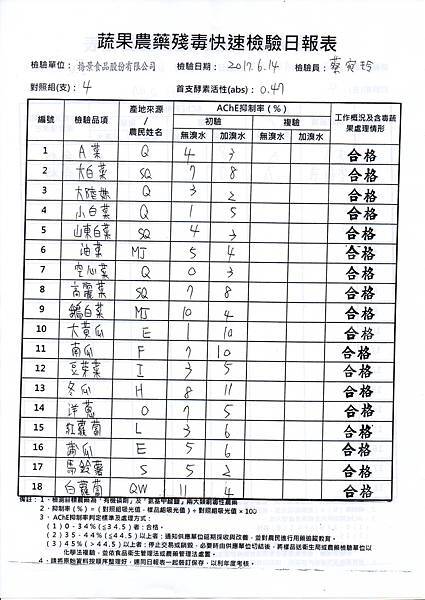 蔬果農藥殘毒快速檢驗日報表
檢驗單位： 梅景食品股份有限公司 檢驗日期： 2017.6.14 檢驗員： 蔡宛玲
對照組(支)： 4 首支酵素活性(abs)： 0.47
編號 檢驗品項 產地來源/農民姓名 AChE抑制率(%) 工作概況及含毒蔬果處理情形
初驗 複驗
無溴水 加溴水 無溴水 加溴水
1 A菜 Q 4 3 合格
2 大白菜 SQ 7 8 合格
3 大陸妹 Q 3 2 合格
4 小白菜 Q 1 5 合格
5 山東白菜 SQ 4 3 合格
6 油菜 MJ 5 4 合格
7 空心菜 Q 0 3 合格
8 高麗菜 SQ 7 8 合格
9 鵝白菜 MJ 10 4 合格
10 大黃瓜 E 1 10 合格
11 南瓜 F 7 10 合格
12 豆芽菜 I 3 5 合格
13 冬瓜 H 8 11 合格
14 洋蔥 O 7 5 合格
15 紅蘿蔔 L 3 6 合格
16 E 5 6 合格
17 馬鈴薯 S 5 2 合格
18 白蘿蔔 QW 11 4 合格
備註：1、檢測目標農藥為"有機磷劑"及"氨基甲酸鹽"兩大類劇毒性農藥
2、抑制率(%)=(對照組吸光值-樣品組吸光值)÷對照組吸光值×100
3、AChE抑制率判定標準及處理方式：
(1) 0 - 34% (≦34.5) 者：合格。
(2) 35 - 44% (≦44.5) 以上者：通知供應單位延期採收與改善，並對農民進行用藥追蹤教育。
(3) 45% (>44.5) 以上者：停止交易或銷毀，必要時由供應單位切結後，將樣品送衛生局或農藥檢驗單位以
化學法複驗，並依食品衛生管理法或農藥管理法處置。
4、請將原始資料按順序整理好，連同日報表一起裝訂保存，以利年度考核。